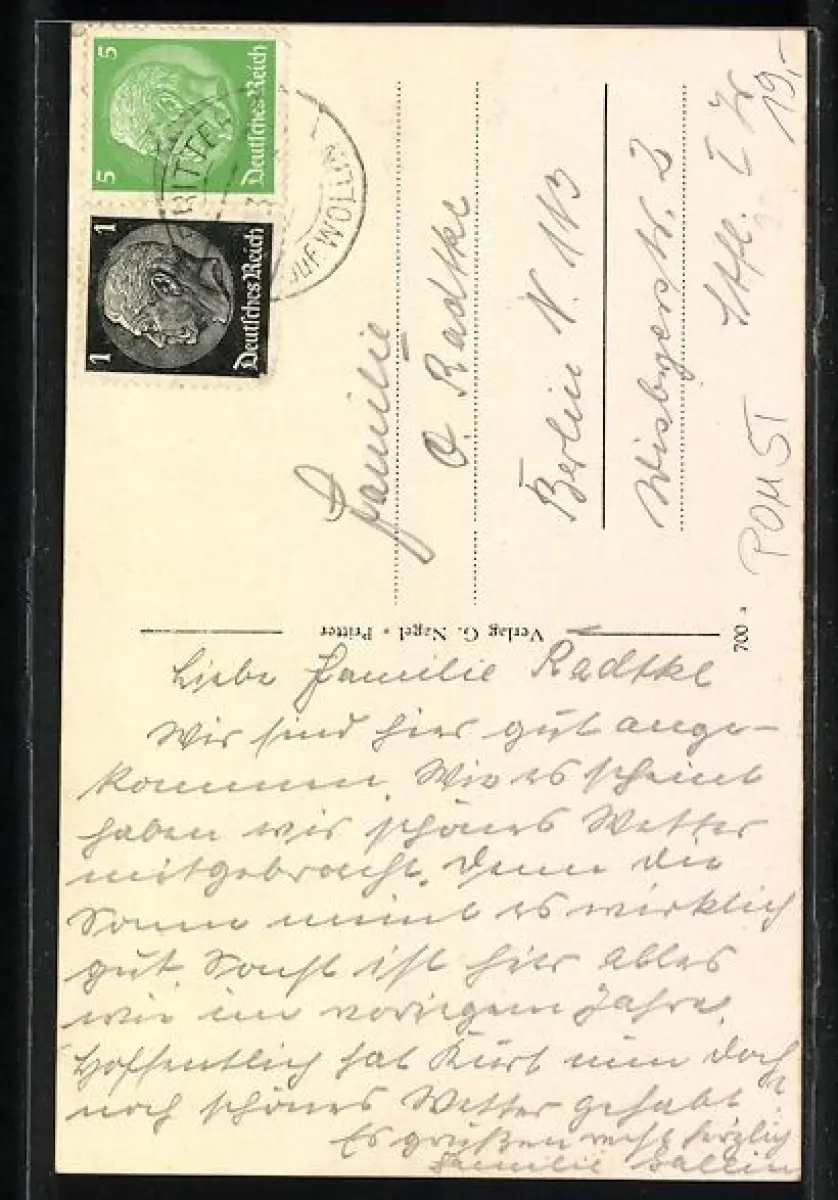 5
5
Deutsches Reich
1
1
Deutsches Reich
AUF WOLLIN
Familie
O. Radtke
Berlin N. 113
Wisbyerstr. 2
Stfl. I
19,-
POMST
Verlag G. Nagel • Pritter
700
Liebe Familie Radtke
Wir sind hier gut ange-
kommen. Wie es scheint
haben wir schönes Wetter
mitgebracht. Denn die
Sonne meint es wirklich
gut. Sonst ist hier alles
wie im vorigem Jahre.
Hoffentlich hat Kurt nun doch
noch schönes Wetter gehabt.
Es grüßen recht herzlich
Familie